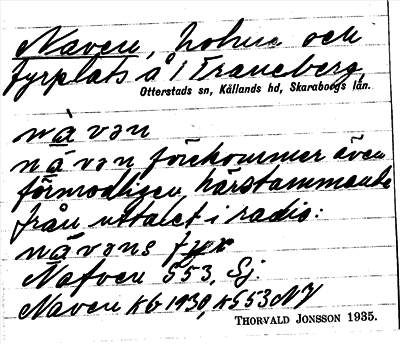 Naven, holme och
fyrplats å i Traneberg,
Otterstads sn, Kållands hd, Skaraborgs län.
nàvən
nāvən förekommer även
förmodligen härstammande
från uttalet i radio:
nāvəns fyr
Nafven 553, Sj.
Naven KG 1930, KS 53 NY
THORVALD JONSSON 1935.